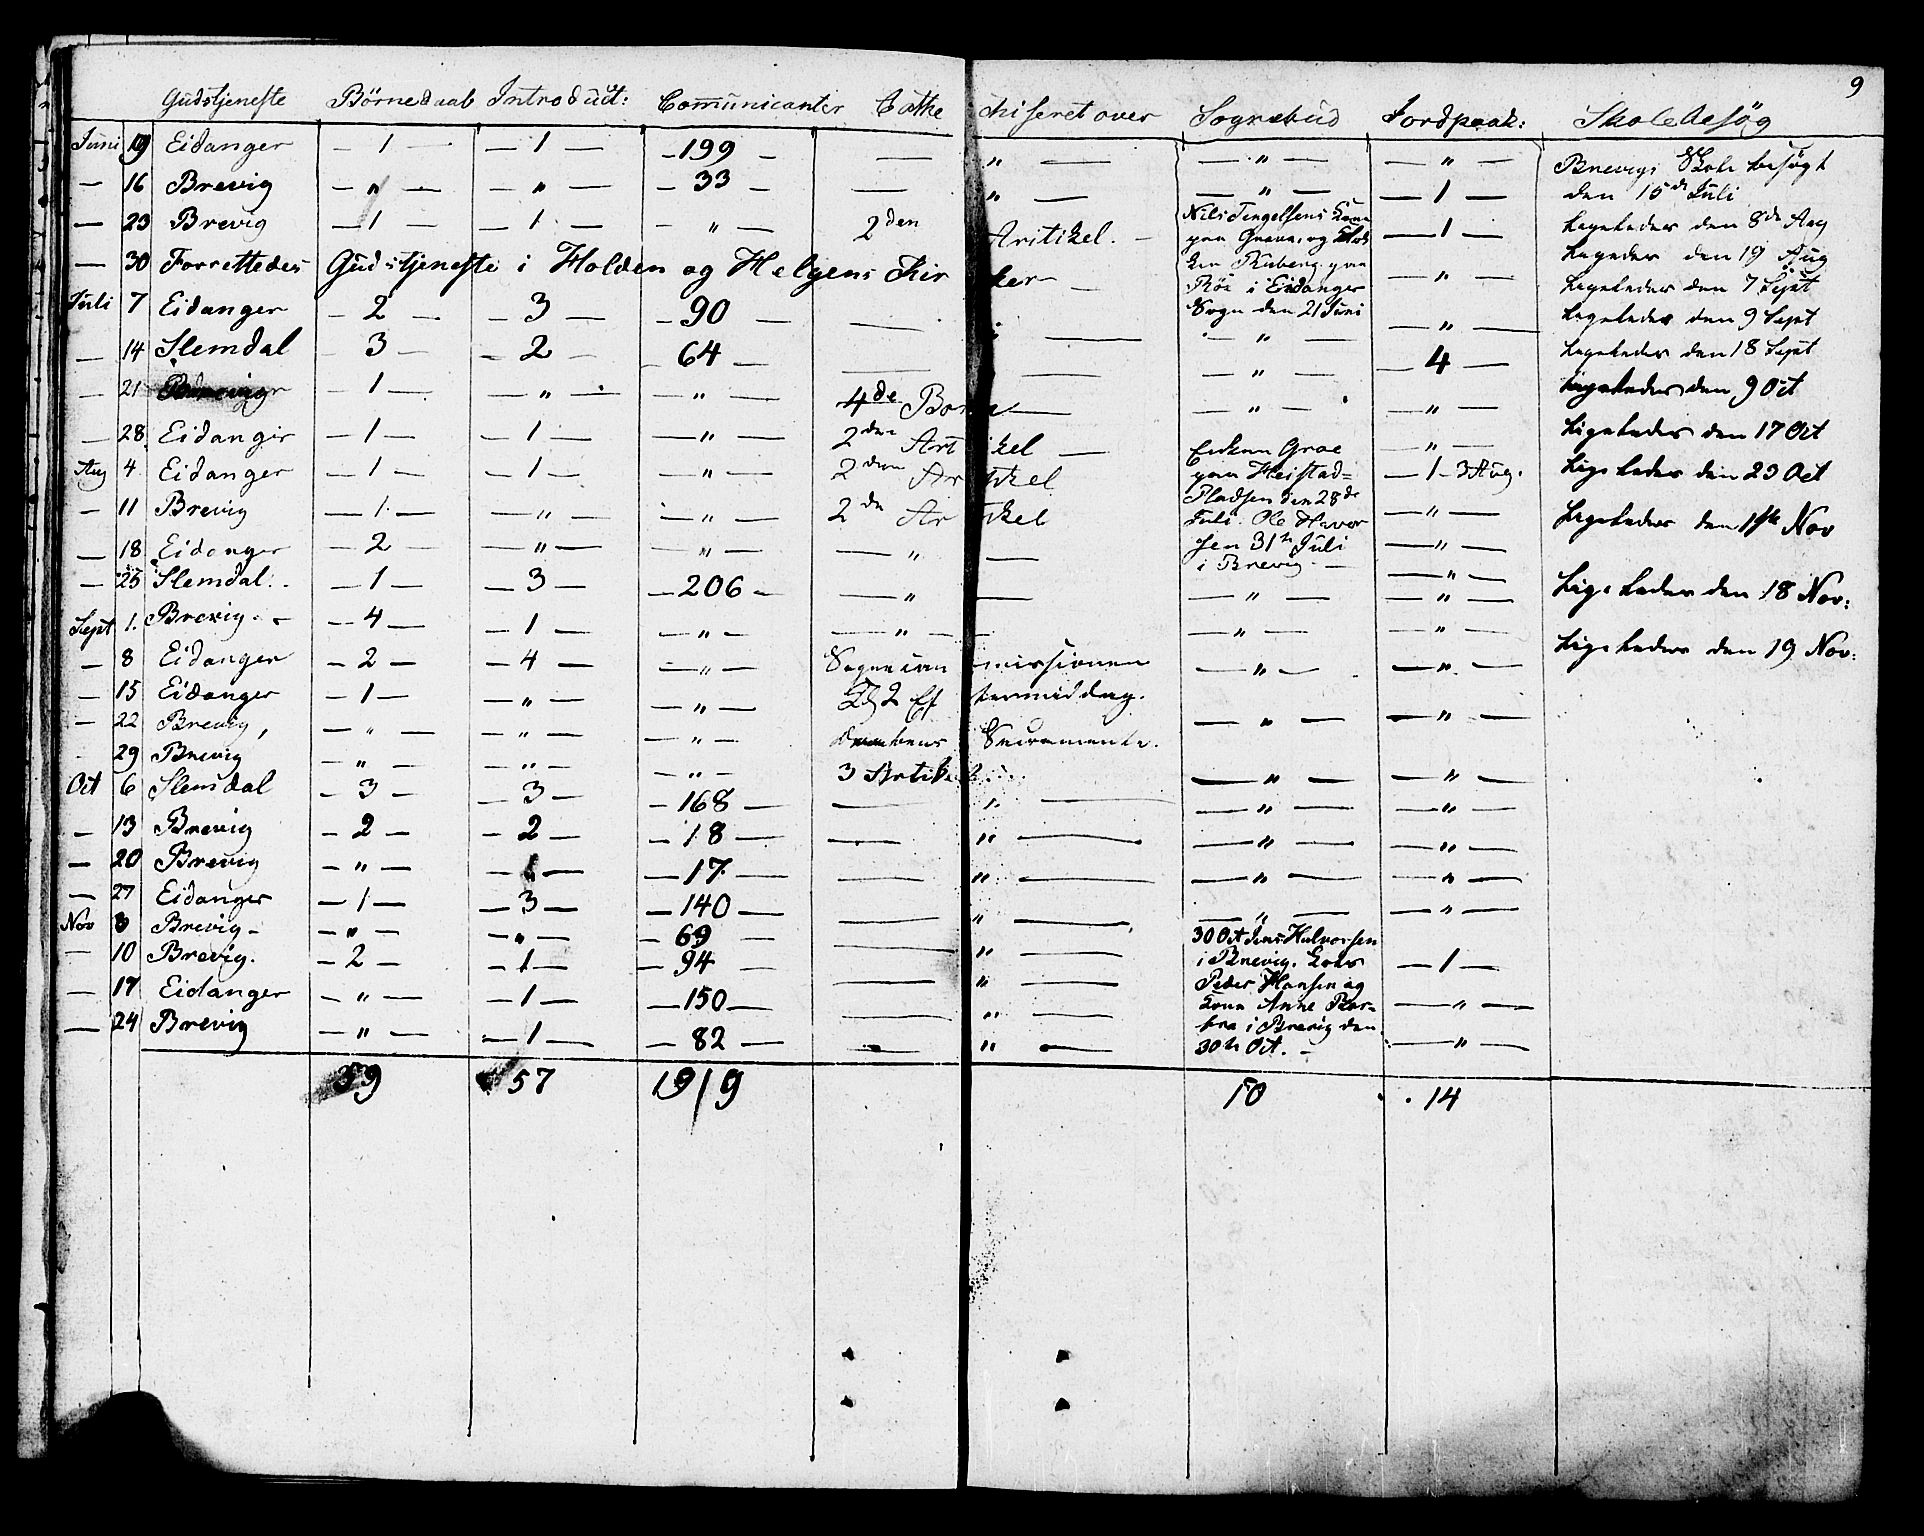 9
Gudstjeneste Börnedaab Introduct: Communicanter Cathe chiseret over Sognebud Jordpaak: Skole Besøg
Juni 19 Eidanger — 1 — — 1 — — 199 — — " — — " — — " —
— 16 Brevig — " — — " — — 33 — — " — — " — — 1 —
— 23 Brevig — 1 — — 1 — — " — 2den Artikel. — — 1 —
— 30 Forrettedes Gudstjeneste i Holden og Helgens Kir ker — — " —
Juli 7 Eidanger — 2 — — 3 — — 90 — — " —
— 14 Slemdal 3 — — 2 — 64 — — " — — 4 —
— 21 — 1 — — " — — " — 4de — " — — " —
— 28 Eidanger — 1 — — 1 — — " — 2den Artikel — — " —
Aug 4 Eidanger — 1 — — 1 — — " — 2den Artikel — 1 — 3 Aug.
— 11 Brevig — 1 — — " — — " — 2de Artikel — " —
— 18 Eidanger — 2 — — " — — " — — " — — " —
— 25 Slemdal. — 1 — — 3 — — 206 — — " — — " — — " —
Sept 1. Brevig. — — 4 — — 1 — — " — — " — — " — — " —
— 8 Eidanger — 2 — — 4 — — " — missionen — " — — " —
— 15 Eidanger — 1 — — " — — " — Kl 2 Eftermiddag.
— 22 Brevig, — " — — " — — " — Sacramente. — " — — " —
29 Brevig — " — — " — — " — 3 Artikel — " — — " —
Oct 6 Slemdal — 3 — — 3 — — 168 — — " — — " — — " —
— 13 Brevig — 2 — — 2 — — 18 — — " — — " — — " —
— 20 Brevig — " — — 1 — — 17 — — " — — " — — " —
— 27 Eidanger — 1 — — 3 — — 140 — — " — — " — — " —
Nov 3 Brevig — — " — — " — — 69 — — " —
— 10 Brevig. — 2 — — 1 — — 94 — — " — — 1 —
— 17 Eidanger — " — — 1 — — 150 — — " — — " —
— 24 Brevig — " — — 1 — — 82 — — " — — " —
59 57 1919 10 14
Nils Tengelsens Kone
paa Grava, og
paa
Röe i Eidanger
Sogn den 21 Juni
Enken Groe
paa Heistad-
Pladsen den 28de
Juli. Ole Halvor
sen 31te Juli
i Brevig. —
30 Oct Jens Halvorsen
i Brevig. Lods
Peder Hansen og
Kone Anne Bar-
bra i Brevig den
30te Oct. —
Brevigs Skole besøgt
den 15de Juli
Ligeledes den 8de Aug
Ligeledes den 19 Aug
Ligeledes den 7 Sept
Ligeledes den 9 Sept
Ligeledes den 18 Sept
Ligeledes den 9 Oct
Ligeledes den 17 Oct
Ligeledes den 23 Oct
Ligeledes den 1ste Nov
Ligeledes den 18 Nov:
Ligeledes den 19 Nov: